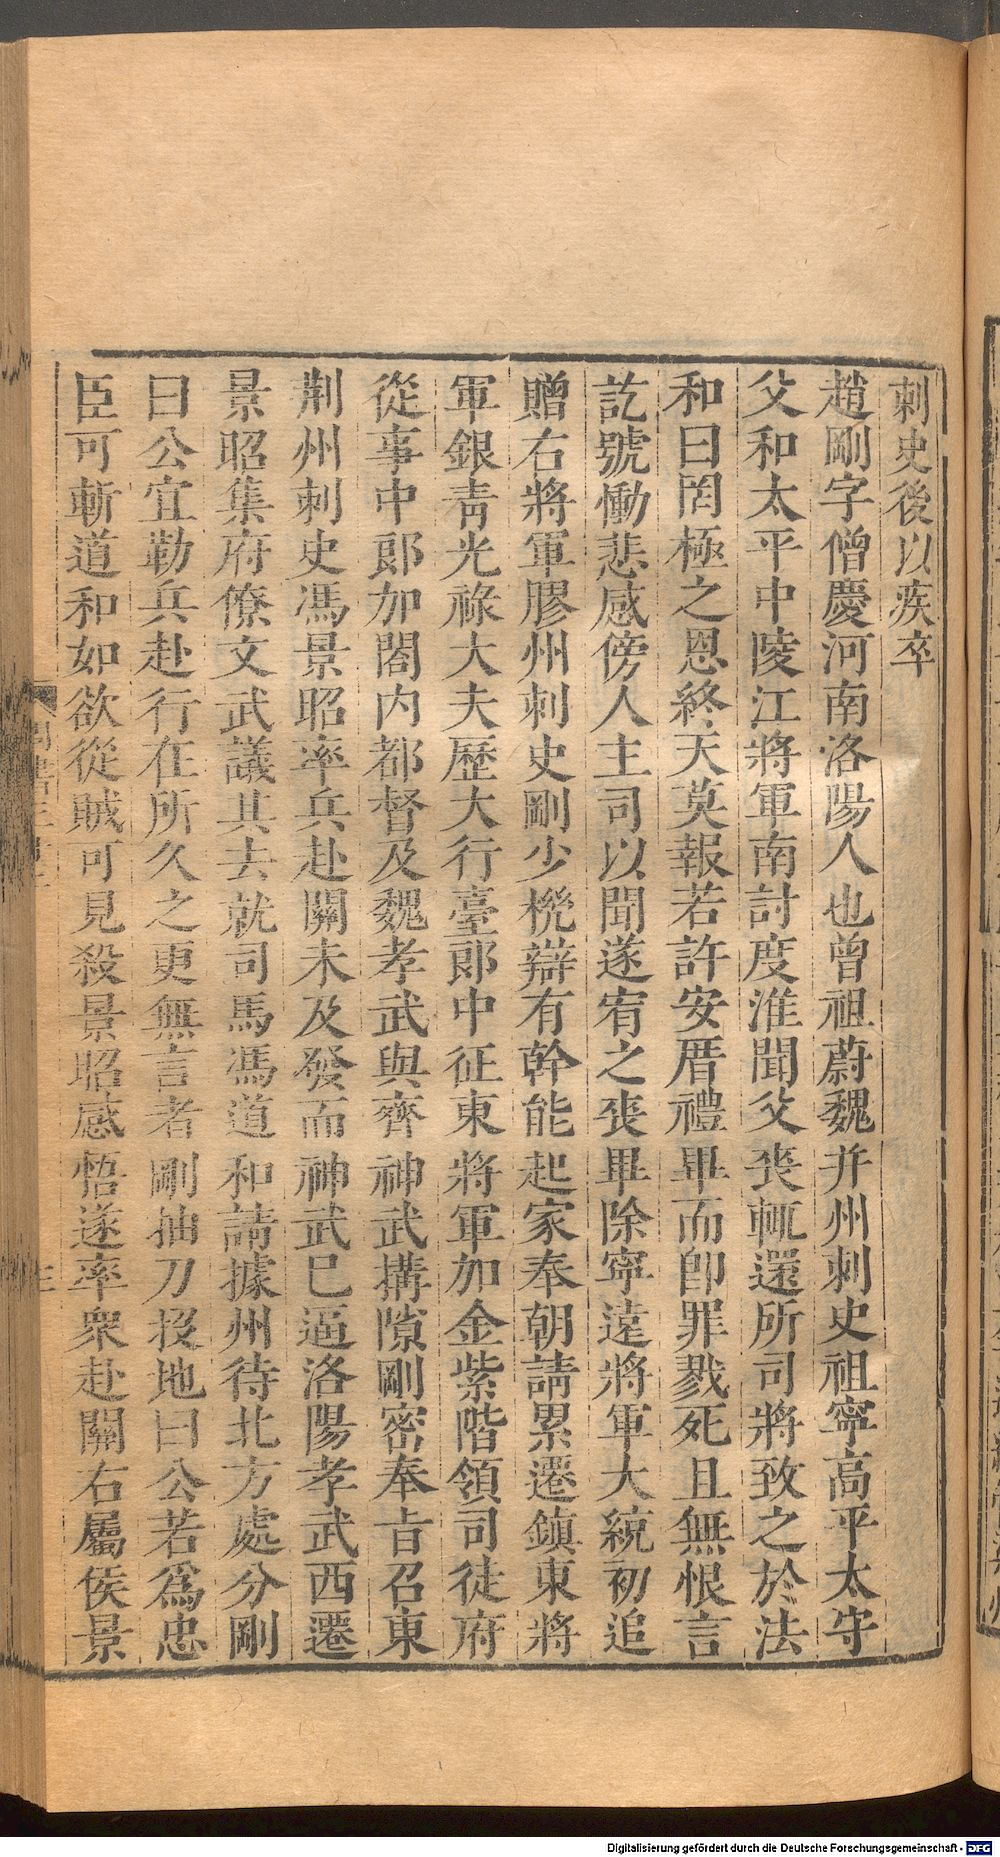 刺史後以疾卒
趙剛字僧慶河南洛陽人也曾祖蔚魏幷州刺史祖寧高平太守
父和太平中陵江將軍南討度淮聞父喪輒還所司將致之於法
和曰罔極之恩終天莫報若許安厝禮畢而卽罪戮死且無恨言
訖號慟悲感傍人主司以聞遂宥之喪畢除寧遠將軍大統初追
贈右將軍膠州刺史剛少機辯有幹能起家奉朝請累遷鎮東將
軍銀靑光祿大夫歷大行臺郞中征東將軍加金紫階領司徒府
從事中郞加閤內都督及魏孝武與齊神武搆隙剛密奉旨召東
荆州刺史馮景昭率兵赴關未及發而神武巳逼洛陽孝武西遷
景昭集府僚文武議其去就司馬馮道和請據州待北方處分剛
曰公宜勒兵赴行在所久之更無言者剛抽刀投地曰公若爲忠
臣可斬道和如欲從賊可見殺景昭感悟遂率衆赴關右屬侯景
Digitalisierung gefördert durch die Deutsche Forschungsgemeinschaft - DFG